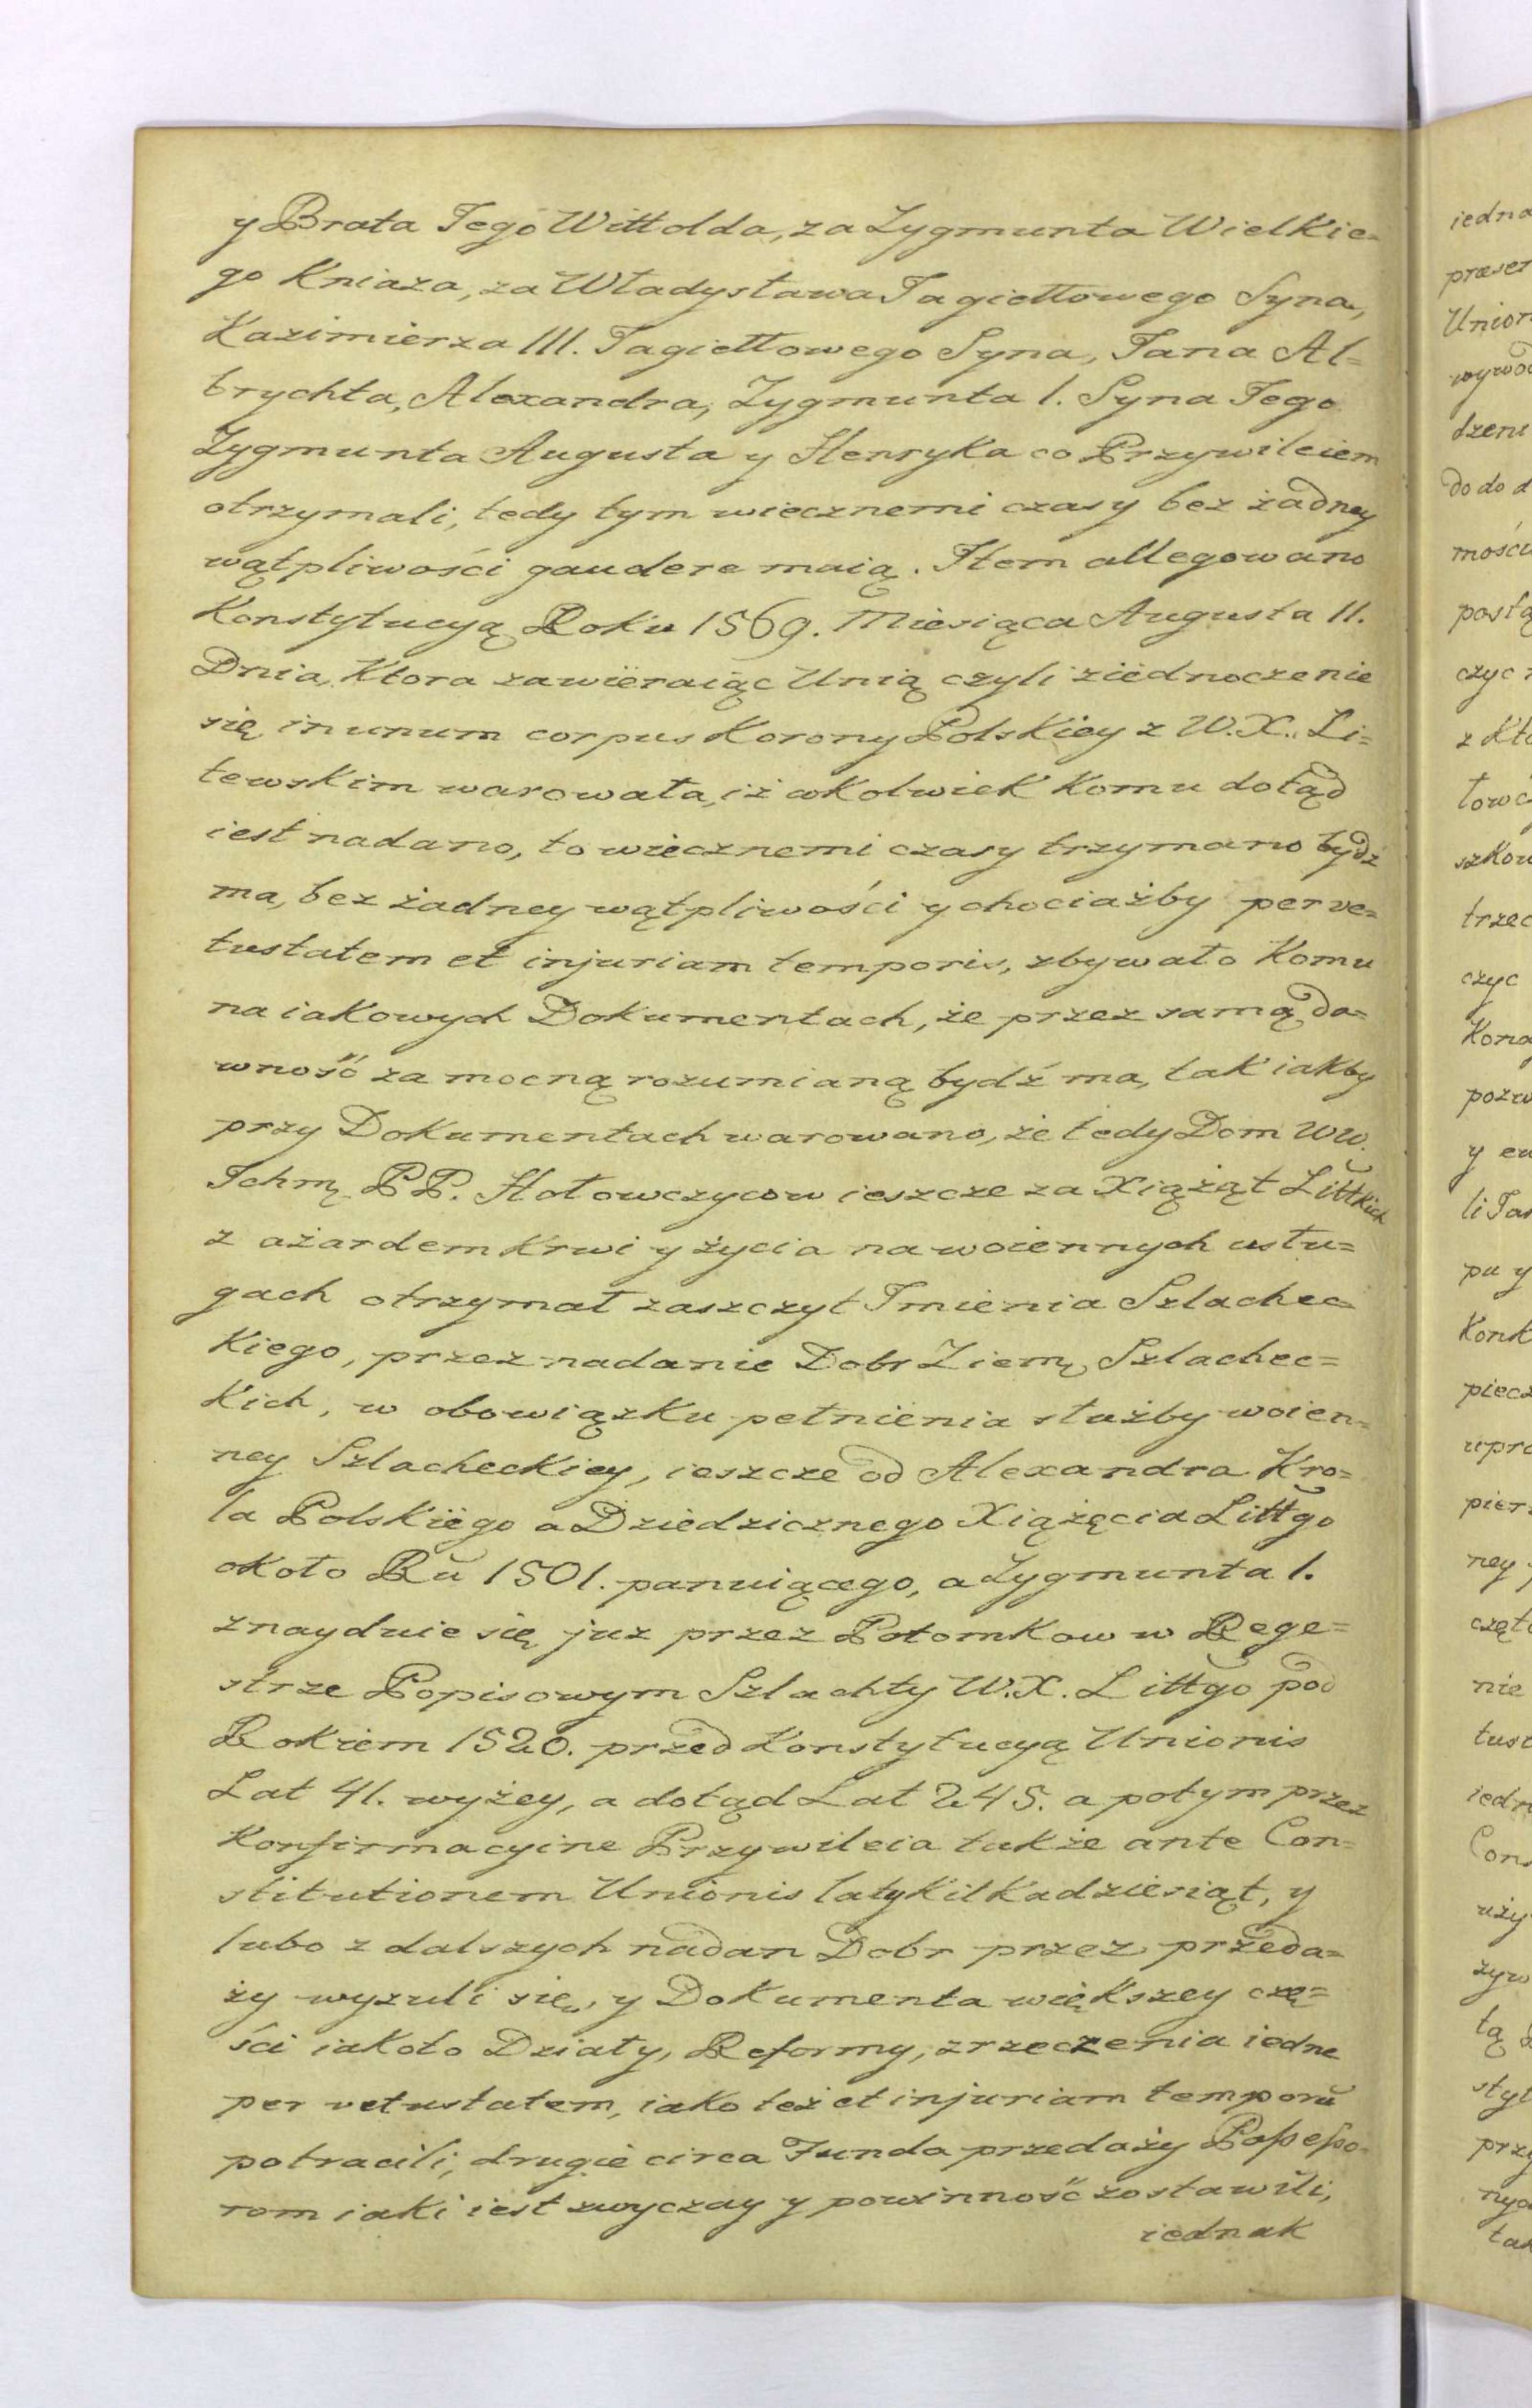 y Brata Jego Wittolda, za Zygmunta Wielkie=
go Kniaza, za Władysława Jagiełłowego Syna,
Kazimierza III. Jagiełłowego Syna, Jana Al=
brychta, Alexandra, Zygmunta I. Syna Jego
Zygmunta Augusta y Henryka co Przywileiem
otrzymali, tedy tym wiecznemi czasy bez żadney
wątpliwości gaudere maią. Item allegowano
Konstytucyą Roku 1569. Miesiąca Augusta 11.
Dnia, Ktora zawieraiąc Unią czyli ziednoczenie
się in unum corpus Korony Polskiey z W.X. Li=
tewskim warowała, iż cokolwiek Komu dotąd
iest nadano, to wiecznemi czasy trzymano bydź
ma, bez żadney wątpliwości y chociażby per ve=
tustatem et injuriam temporis, zbywało Komu
na iakowych Dokumentach, że przez samą da=
wność za mocną rozumianą bydź ma, tak iakby
przy Dokumentach warowano, że tedy Dom WW.
Ichmę. PP. Hołowczycow ieszcze za Xiążąt Littkich
z ażardem Krwi y życia na woiennych usłu=
gach otrzymał zaszczyt Imienia Szlachec=
Kiego, przez nadanie Dobr Ziemę. Szlachec=
Kich, w obowiązku pełnienia służby woien=
ney Szlacheckiey, ieszcze od Alexandra Kro=
la Polskiego a Dziedzicznego Xiążęcia Littgo
około Ru 1501. panuiącego, a Zygmunta I.
znayduie się juz przez Potomkow w Rege=
strze Popisowym Szlachty W.X. Littgo pod
Rokiem 1528. przed Konstytucyą Unionis
Lat 41. wyżey, a dotąd Lat 245. a potym przez
Konfirmacyine Przywileia także ante Con=
stitutionem Unionis laty Kilkadziesiąt, y
lubo z dalszych nadan Dobr przez przeda=
ży wyzuli się, y Dokumenta większey czę=
ści iakoto Działy, Reformy, zrzeczenia iedne
per vetustatem, iako też et injuriam temporū
potracili, drugie circa Funda przedaży Possesso=
rom iaki iest zwyczay y powinność zostawili,
iednak